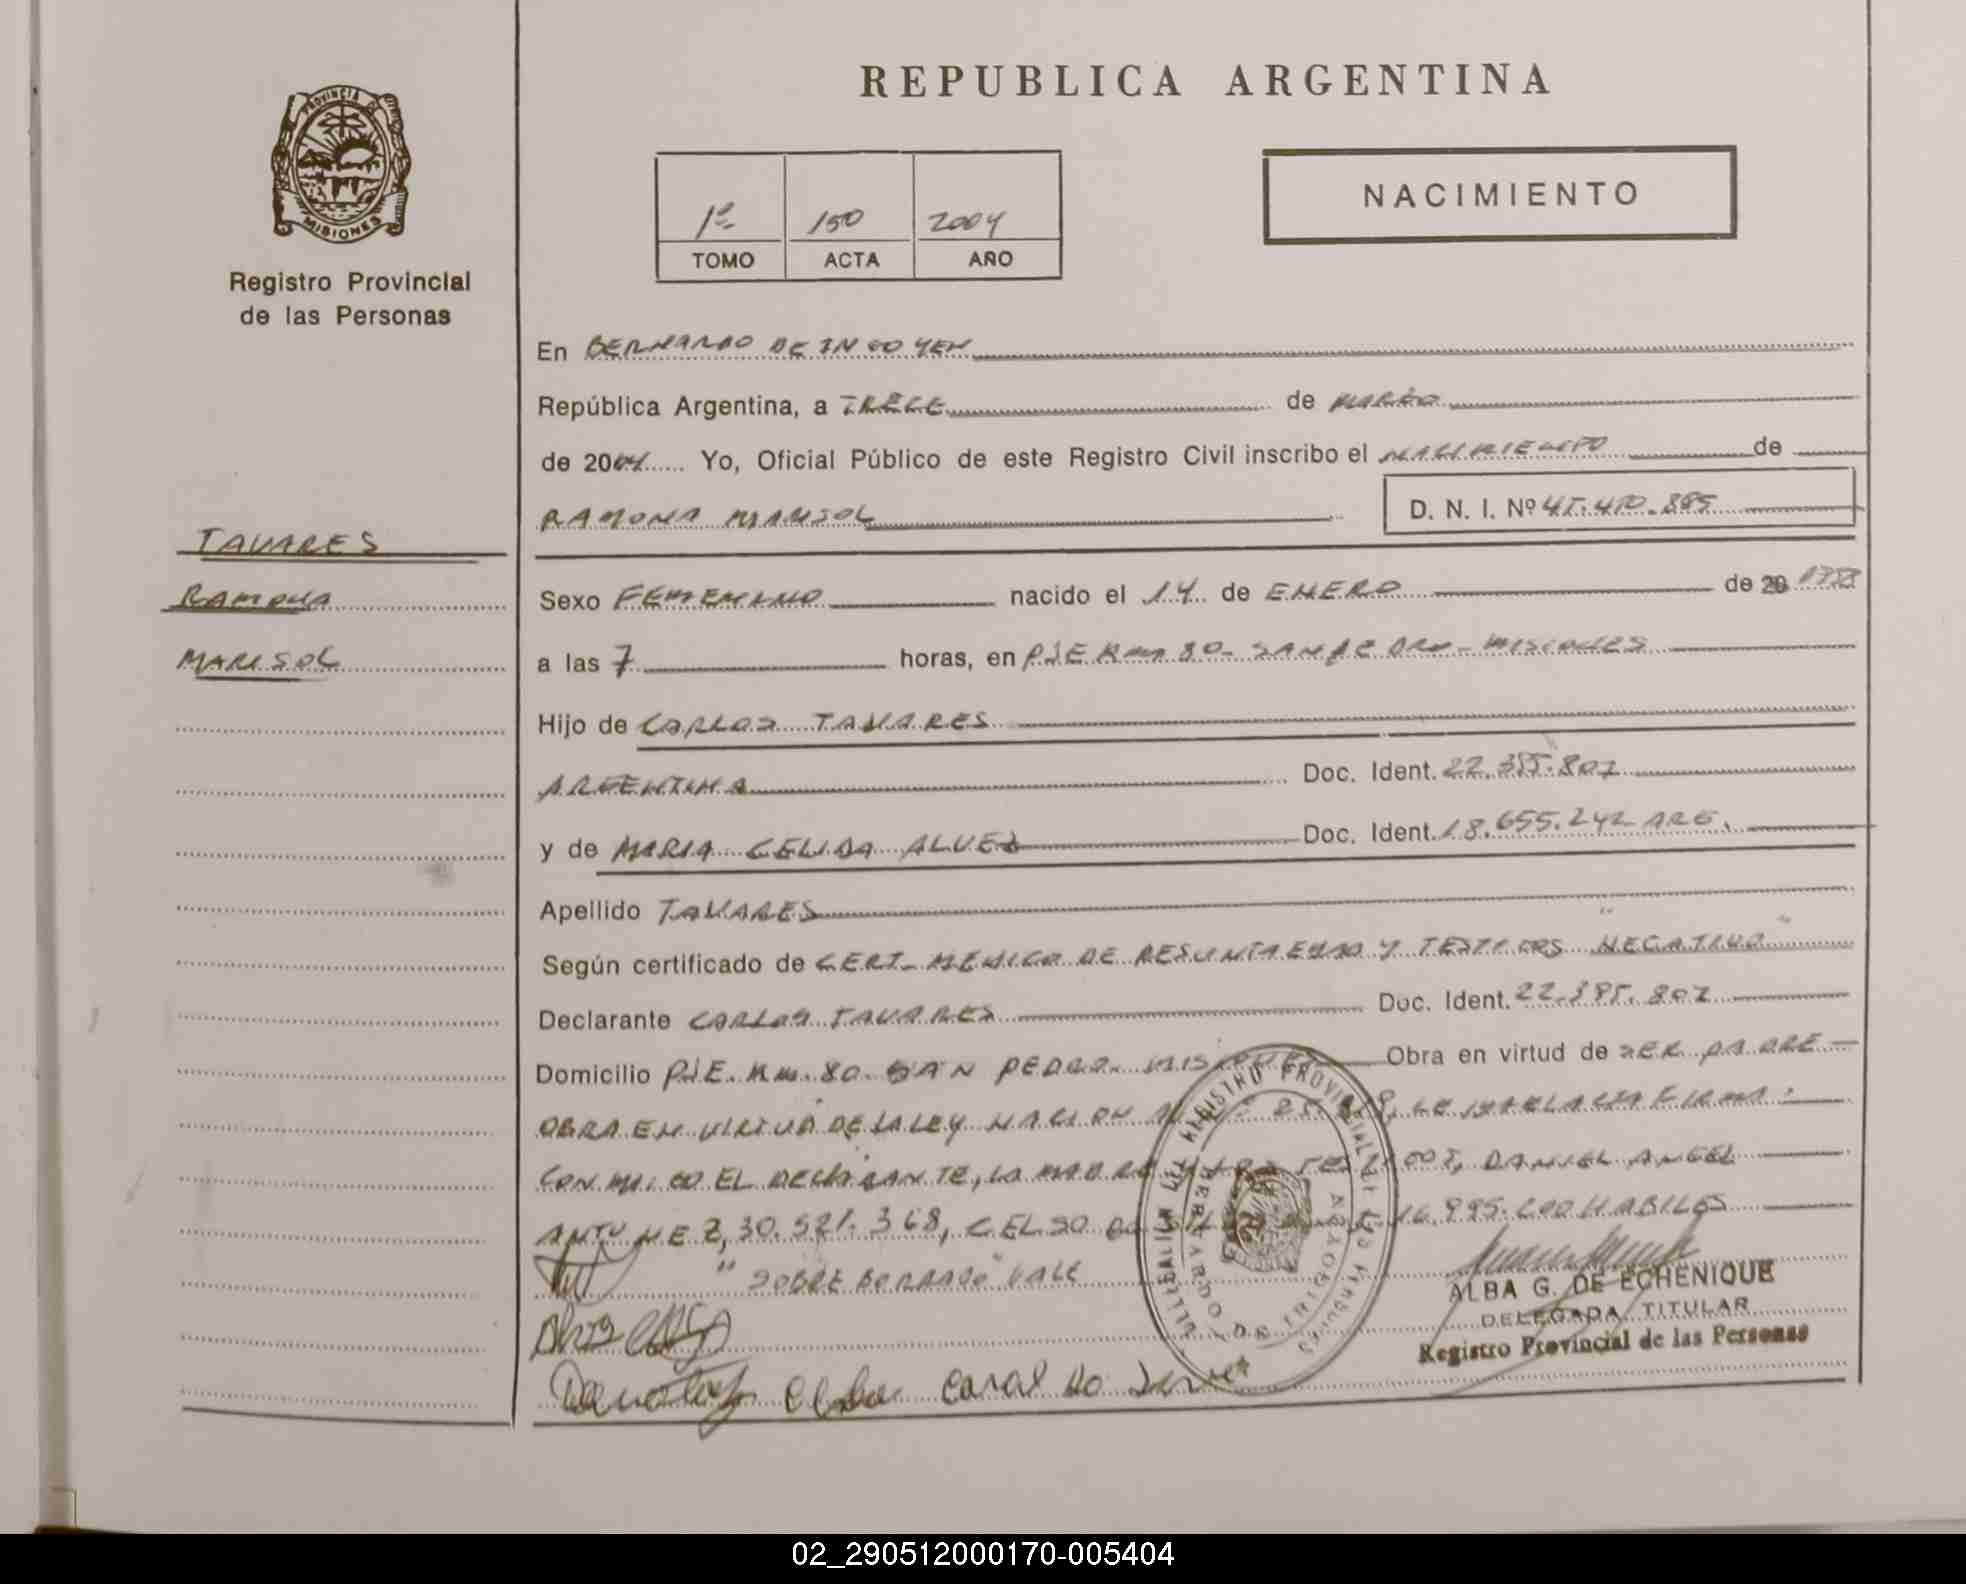 REPUBLICA ARGENTINA
PROVINCIA DE
MISIONES
Registro Provincial
de las Personas
1º 150 2004
TOMO ACTA AÑO
NACIMIENTO
En BERNARDO DE IRIGOYEN
República Argentina, a TRECE de MARZO
de 2004 Yo, Oficial Público de este Registro Civil inscribo el NACIMIENTO de
RAMONA MARISOL D. N. I. Nº
TAVARES
RAMONA
MARISOL
Sexo FEMENINO nacido el 14 de ENERO de
a las 7 horas, en PJE Km 80 - SAN PEDRO - MISIONES
Hijo de CARLOS TAVARES
ARGENTINA Doc. Ident.
y de MARIA CELIDA ALVEZ Doc. Ident. 18.655.242 ARG.
Apellido TAVARES
Según certificado de CERT. MEDICO DE Y TESTIGOS "NEGATIVO"
Declarante CARLOS TAVARES Doc. Ident.
Domicilio PJE. Km. 80. SAN PEDRO. MISIONES Obra en virtud de SER PADRE
OBRA EN VIRTUD DE LA LEY NACIONAL FIRMA:
CONMIGO EL DECLARANTE, LA MADRE Y LOS TESTIGOS, DANIEL ANGEL
ANTUNEZ, 30.521.368, CELSO HABILES
"SOBRE BORRADO" VALE
ALBA G. DE ECHENIQUE
DELEGADA TITULAR
Registro Provincial de las Personas
02_290512000170-005404